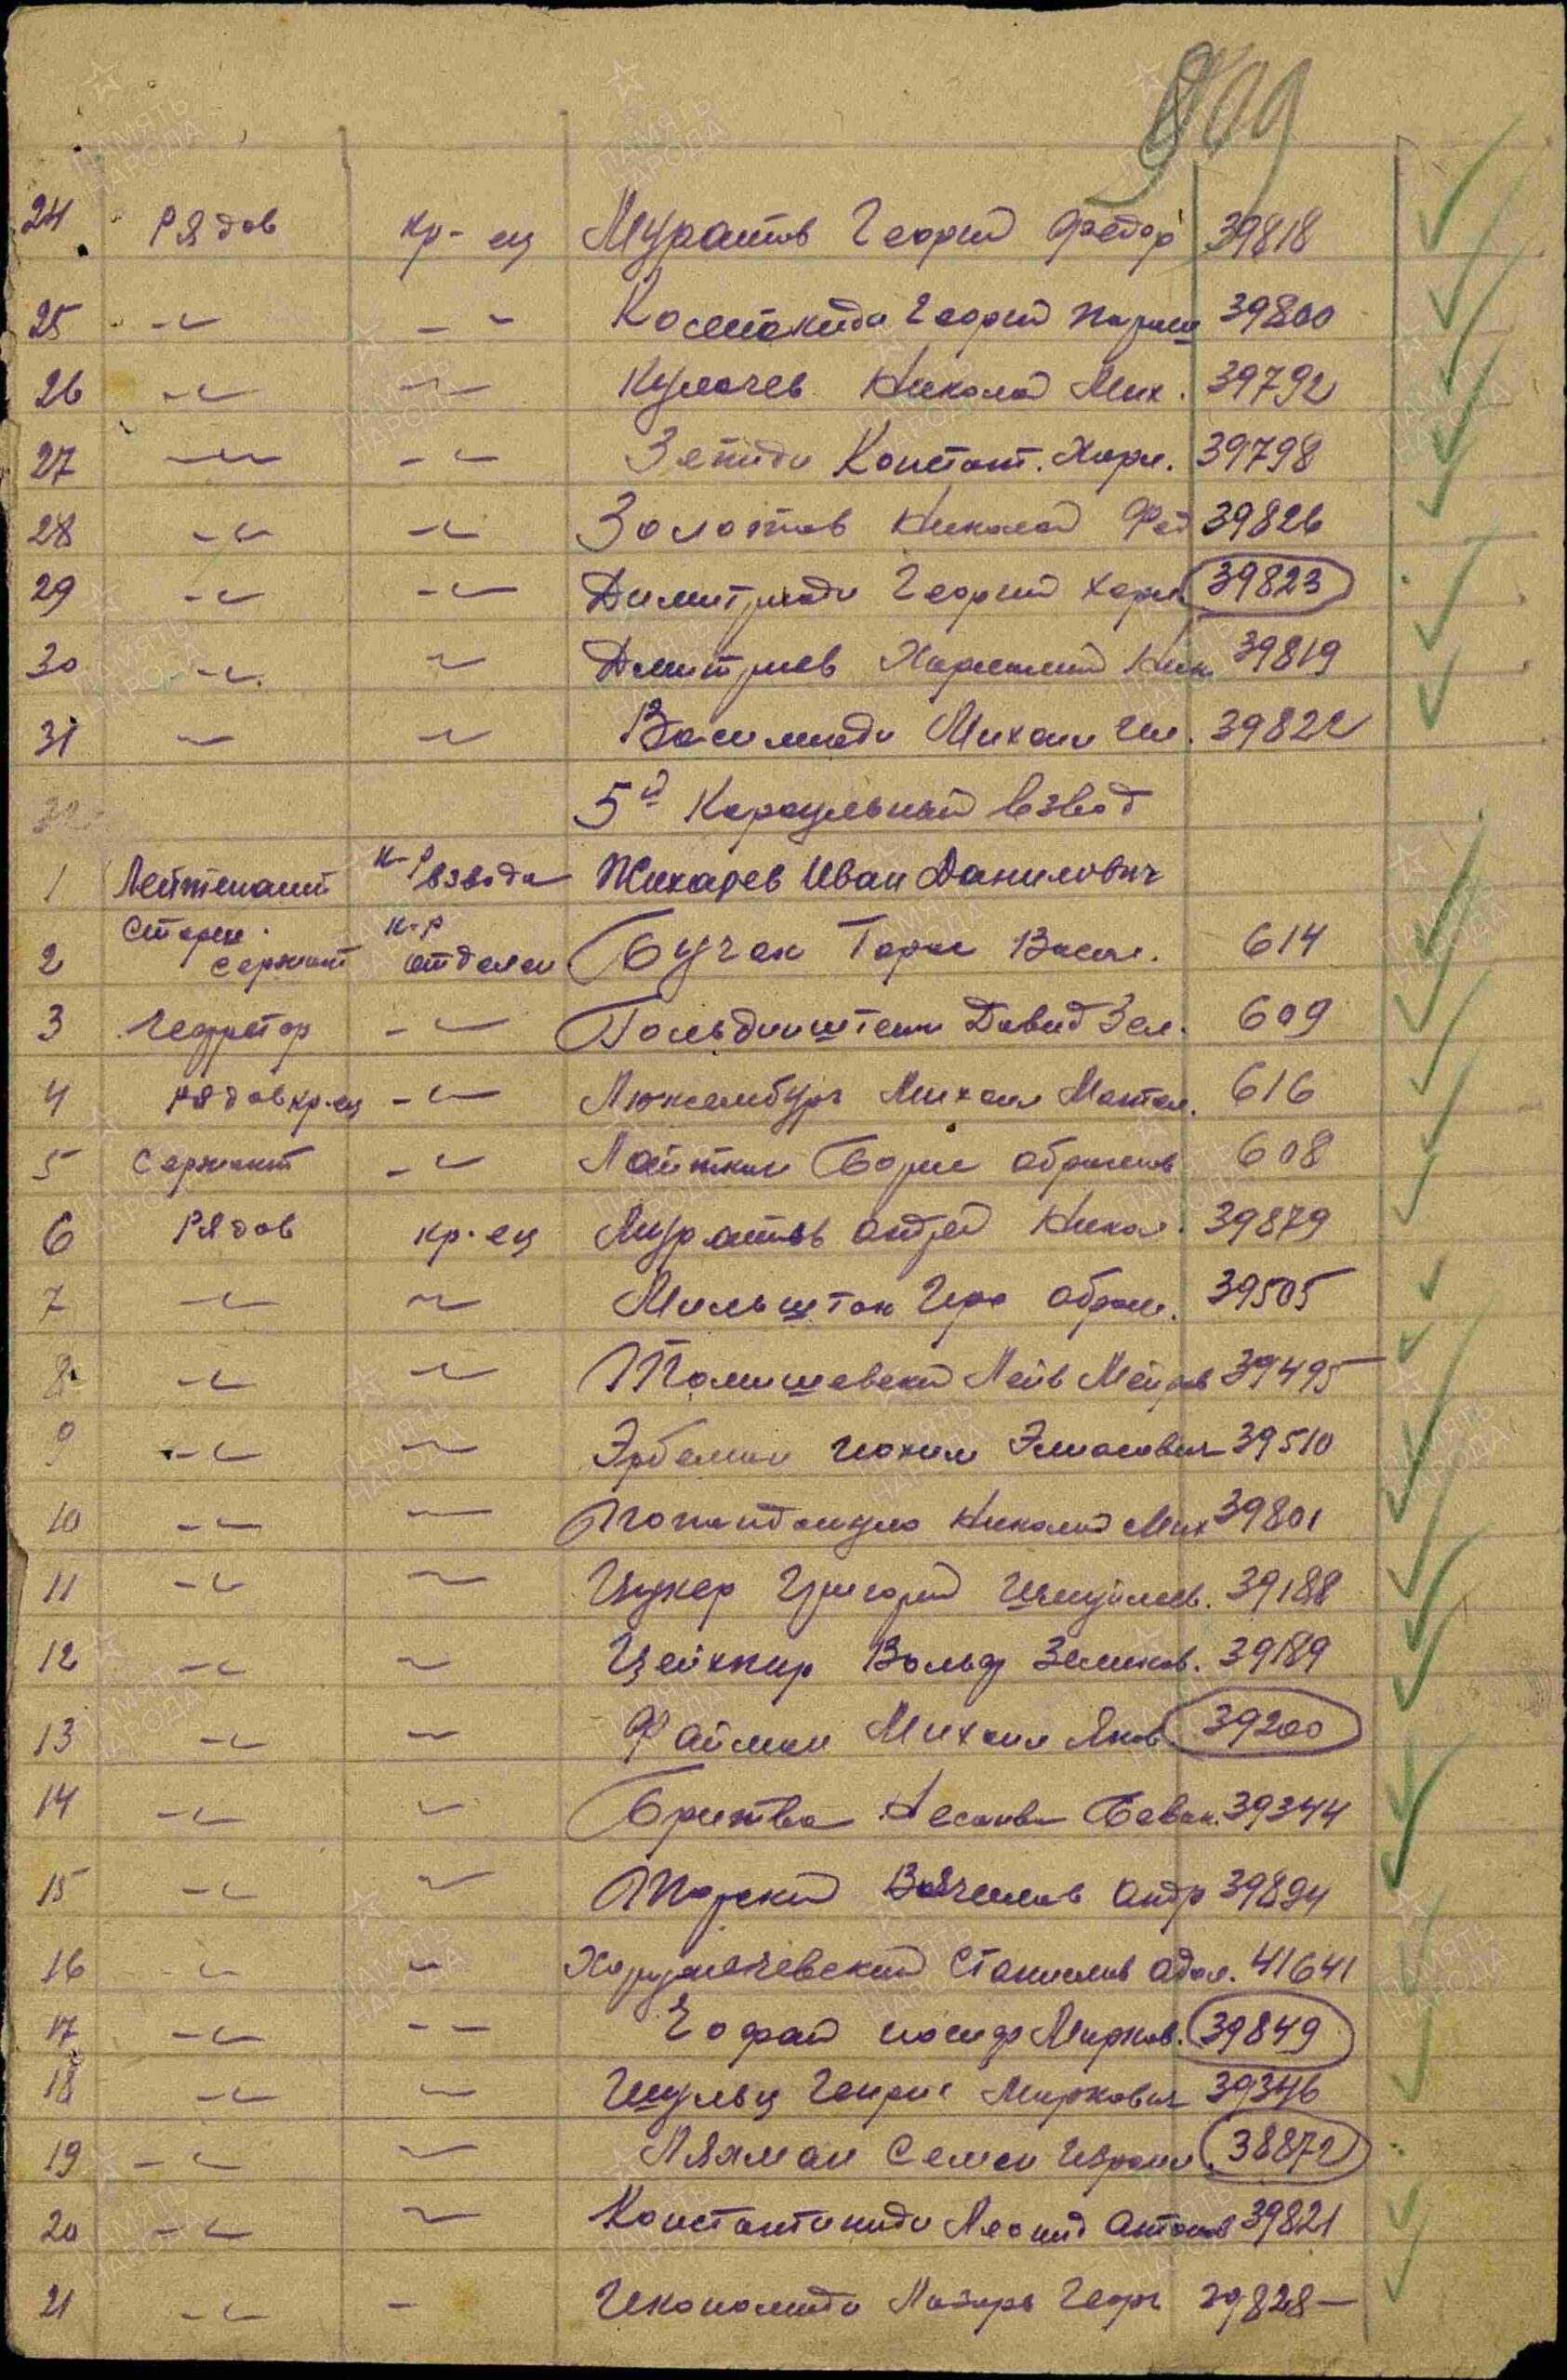 909
24 Рядов кр-ец Муратов Георгий Федор 39818
25 -"- -"- Костокиди Георгий 39800
26 -"- -"- Кумачев Николай Мих. 39792
27 -"- -"- Зепиди Констант. Харл. 39798
28 -"- -"- Золотов Николай Фед 39826
29 -"- -"- Димитриади Георгий Харл. 39823
30 -"- " Дмитриев Харлампий Ник 39819
31 " " Василиади Михаил Ил. 39822
32 5й Караульный взвод
1 Лейтенант к-р взвода Жихарев Иван Данилович
2 Старш. сержант к-р отделен Бучек Тарас Васил. 614
3 Ефрейтор -"- Гольдинштеин Давид Зел. 609
4 Рядов кр-ец -"- Люксембург Михаил 616
5 Сержант -"- Лайткин Борис Абрамов 608
6 Рядов кр-ец Муратов Андрей Никол. 39879
7 -"- " Мильштон Абрам. 39505
8 -"- " Томашевский Лейв Мейров 39495
9 -"- " Эрбелман Иохим 39510
10 -"- " Попандопуло Николай Мих 39801
11 -"- " Цукер Григорий Шмуйлов. 39188
12 -"- " Цейхнир Вольф Зеликов. 39189
13 -"- " Файман Михаил Яков 39200
14 -"- " Бритва 39344
15 -"- " Порский Вячеслав Андр 39894
16 -"- " Станислав Адол. 41641
17 -"- -- Иосиф Марков. 39849
18 -"- " Шульц Генрих Маркович 39346
19 -"- " Ляхман Семен Израил. 38872
20 -"- " Константиниди Леонид Антонов 39821
21 -"- - Икономиди Лазарь Георг 39828-